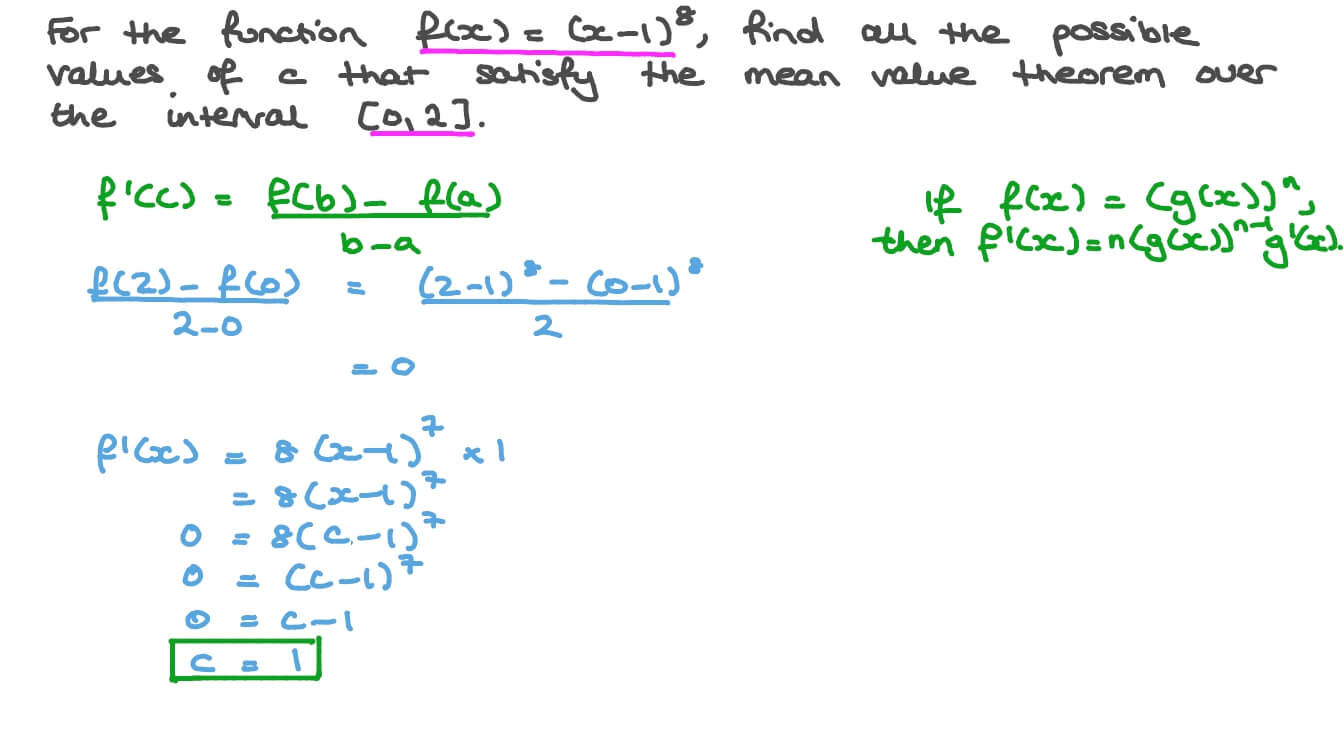 For the function f(x) = (x-1)⁸, find all the possible
values of c that satisfy the mean value theorem over
the interval [0, 2].
f'(c) = f(b) - f(a)
b-a
If f(x) = (g(x))ⁿ,
then f'(x) = n(g(x))ⁿ⁻¹ g'(x).
f(2) - f(0) = (2-1)⁸ - (0-1)⁸
2-0 2
= 0
f'(x) = 8(x-1)⁷ × 1
= 8(x-1)⁷
0 = 8(c-1)⁷
0 = (c-1)⁷
0 = c-1
c = 1